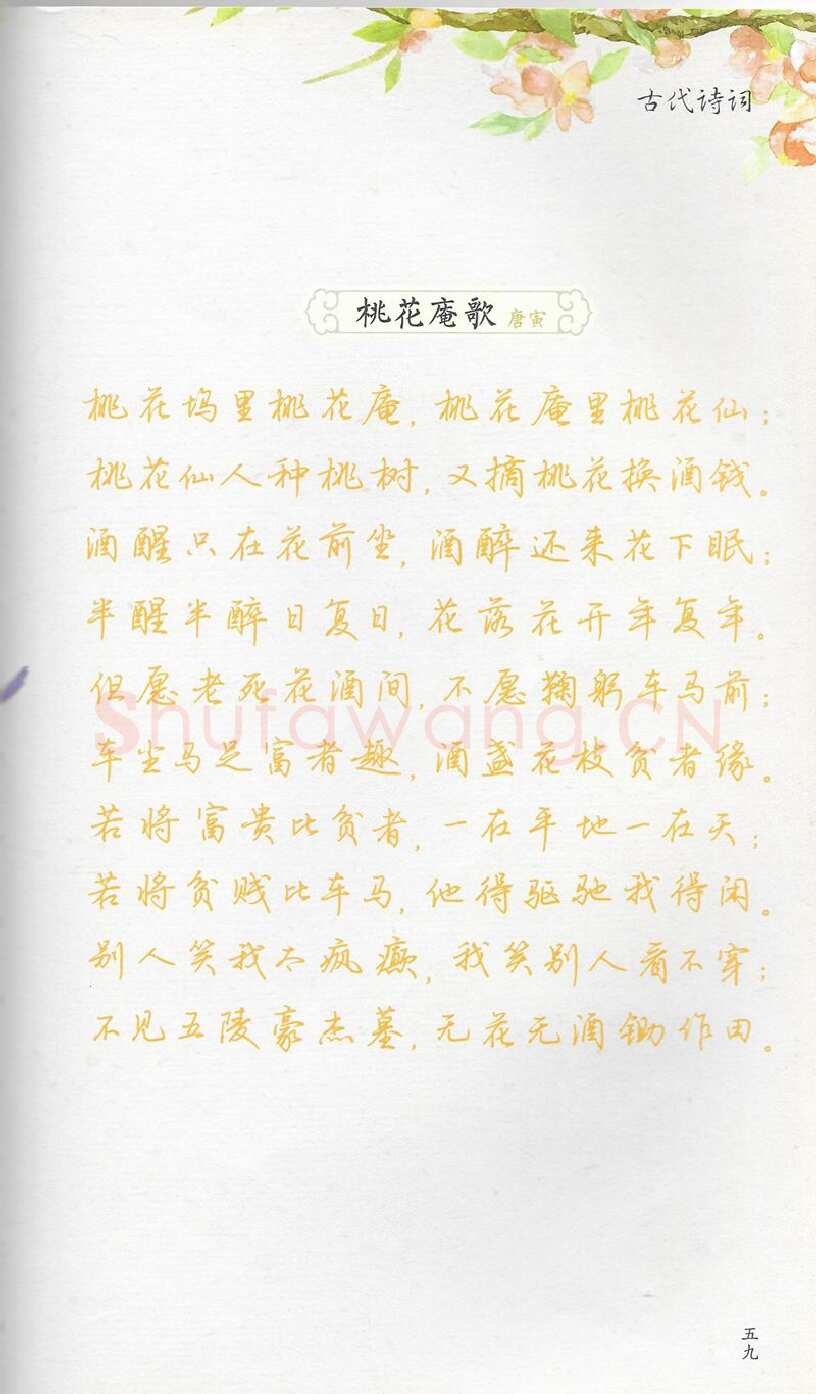 古代诗词
桃花庵歌 唐寅
桃花坞里桃花庵，桃花庵里桃花仙；
桃花仙人种桃树，又摘桃花换酒钱。
酒醒只在花前坐，酒醉还来花下眠；
半醒半醉日复日，花落花开年复年。
但愿老死花酒间，不愿鞠躬车马前；
车尘马足富者趣，酒盏花枝贫者缘。
若将富贵比贫者，一在平地一在天；
若将贫贱比车马，他得驱驰我得闲。
别人笑我太疯癫，我笑别人看不穿；
不见五陵豪杰墓，无花无酒锄作田。
Shufawang.CN
五九